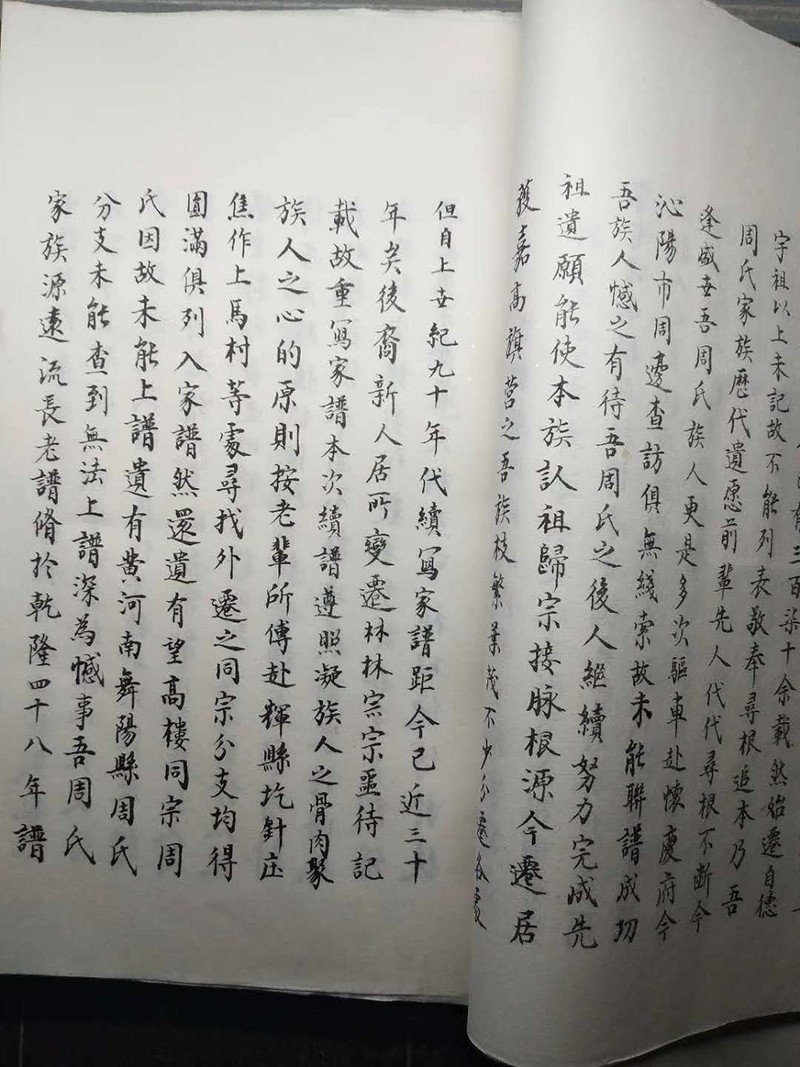 有三百柒十余載然始遷自德
字祖以上未記故不能列表敬奉尋根追本乃吾
周氏家族歷代遺愿前輩先人代代尋根不断今
逢盛世吾周氏族人更是多次驅車赴懷慶府今
沁陽市周邊查訪俱無綫索故未能聯譜成功
吾族人憾之有待吾周氏之後人継續努力完成先
祖遺願能使本族認祖歸宗接脉根源今遷居
获嘉高旗莒之吾族枝繁葉茂不少分遷各處
但自上世紀九十年代續寫家譜距今已近三十
年矣後裔新人居所變遷林林宗宗亟待記
載故重寫家譜本次續譜遵照凝族人之骨肉聚
族人之心的原則按老輩所傳赴輝縣圪針庄
焦作上馬村等處尋找外遷之同宗分支均得
圓滿俱列入家譜然還遺有望高樓同宗周
氏因故未能上譜遺有黄河南舞陽縣周氏
分支未能查到無法上譜深為憾事吾周氏
家族源遠流長老譜脩於乾隆四十八年譜